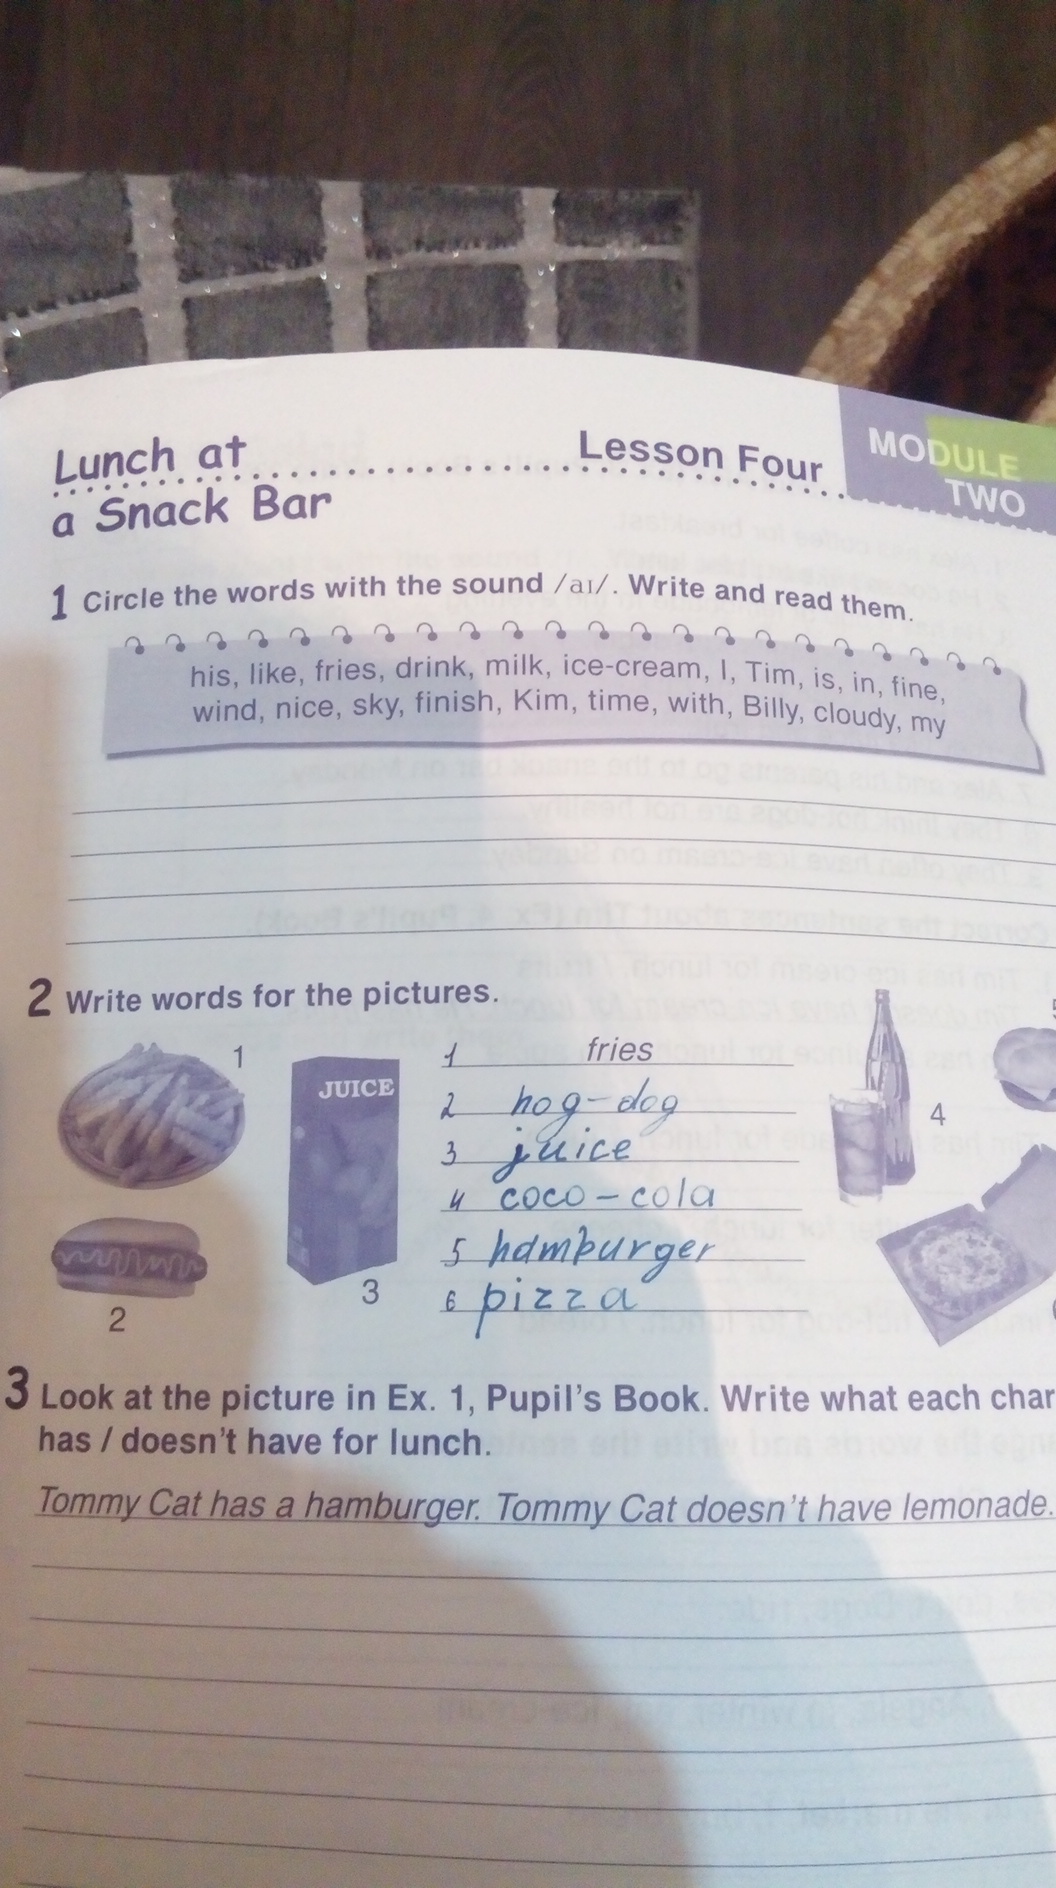 Lunch at
Lesson Four
MODULE
TWO
a Snack Bar
1 Circle the words with the sound /aɪ/. Write and read them.
his, like, fries, drink, milk, ice-cream, I, Tim, is, in, fine,
wind, nice, sky, finish, Kim, time, with, Billy, cloudy, my
2 Write words for the pictures.
1
JUICE
1 fries
2 hog-dog
3 juice
4 coco-cola
5 hamburger
6 pizza
4
3
2
3 Look at the picture in Ex. 1, Pupil's Book. Write what each char
has / doesn't have for lunch.
Tommy Cat has a hamburger. Tommy Cat doesn't have lemonade.